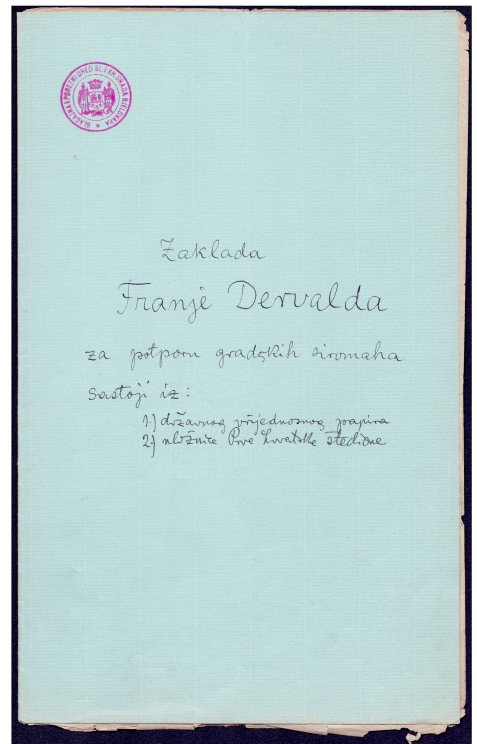 BLAGAJNA I POREZNI URED SL. I KR. GRADA BJELOVARA
Zaklada
Franje Dervalda
za potporu gradskih siromaha
sastoji iz:
1.) državnog vrijednosnog papira
2.) uložnice Prve hrvatske štedione